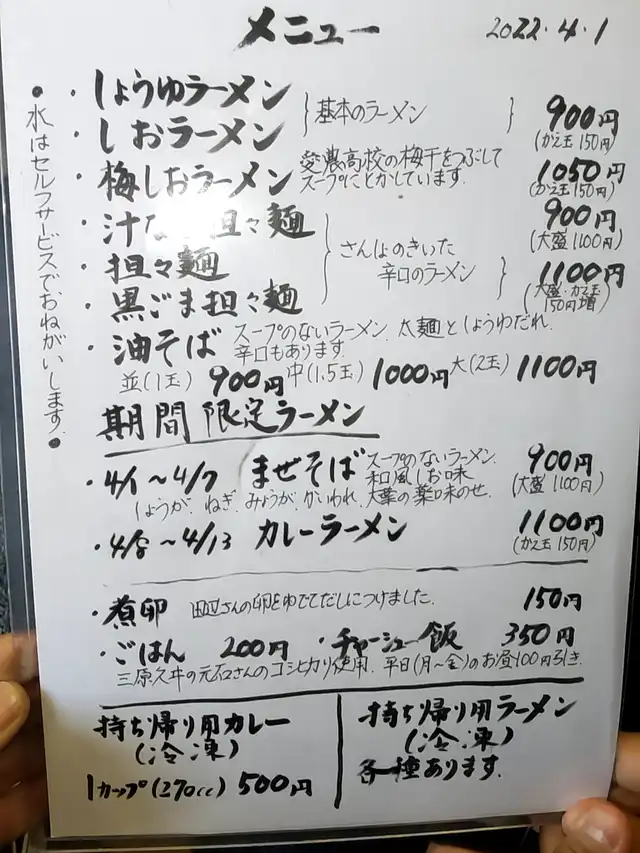 メニュー
2022.4.1
・しょうゆラーメン
・しおラーメン
基本のラーメン
900円
(かえ玉150円)
・梅しおラーメン
愛農高校の梅干をつぶして
スープにとかしています.
1050円
(かえ玉150円)
・汁な 担々麺
900円
(大盛1100円)
・担々麺
・黒ごま担々麺
さんしょのきいた
辛口のラーメン
1100円
(大盛・かえ玉
150円増)
・油そば
スープのないラーメン. 太麺としょうゆだれ.
辛口もあります.
並(1玉) 900円 中(1.5玉) 1000円 大(2玉) 1100円
期間限定ラーメン
・4/1〜4/7 まぜそば
スープのないラーメン.
和風しお味
しょうが、ねぎ、みょうが、かいわれ、大葉の薬味のせ.
900円
(大盛1100円)
・4/8〜4/13 カレーラーメン
1100円
(かえ玉150円)
・煮卵 田辺さんの卵をゆでてだしにつけました. 150円
・ごはん 200円 ・チャーシュー飯 350円
三原久井の元石さんのコシヒカリ使用. 平日(月〜金)のお昼100円引き.
持ち帰り用カレー
(冷凍)
1カップ(270cc) 500円
持ち帰り用ラーメン
(冷凍)
各種あります.
●水はセルフサービスでおねがいします.●